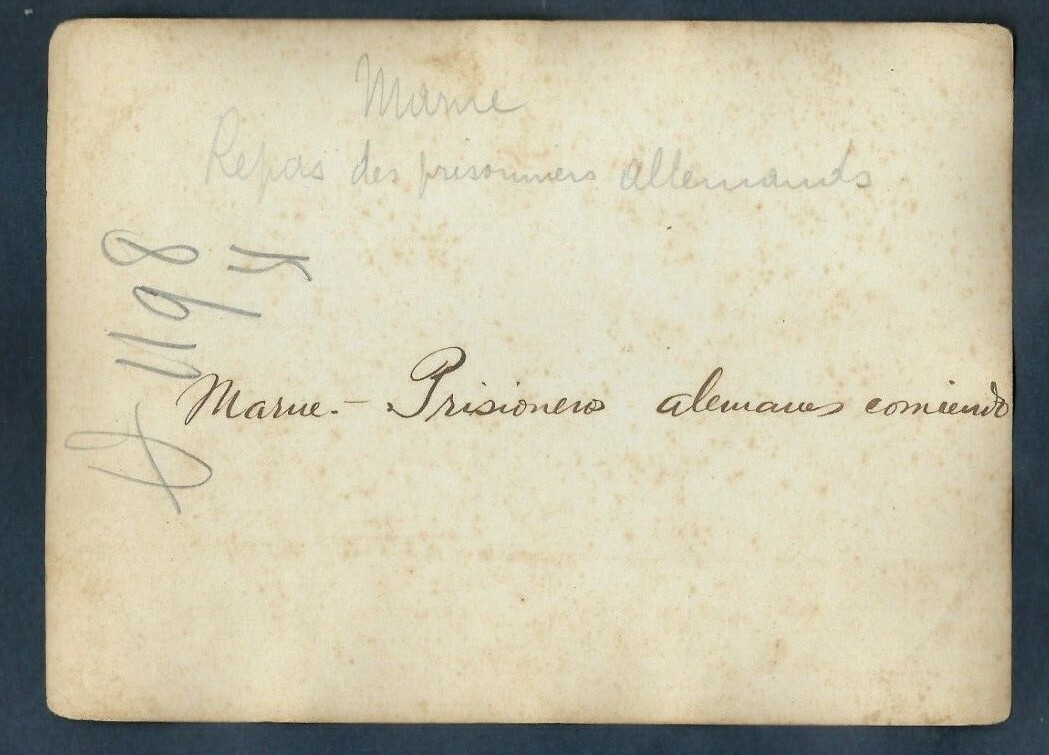 Marne
Repas des prisonniers allemands
1198
Marne.- Prisioneros alemanes comiendo